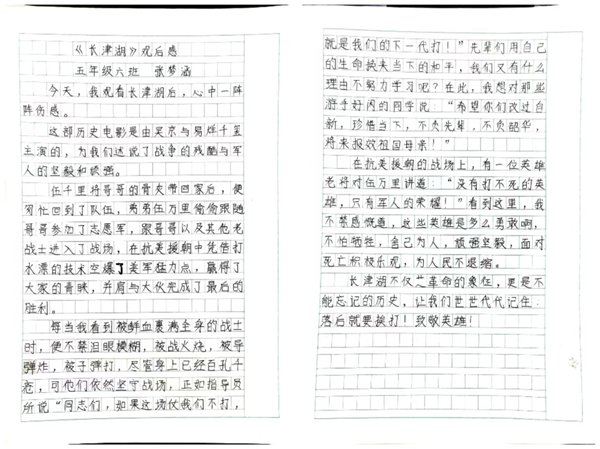 《长津湖》观后感
五年级六班 张梦涵
今天，我观看长津湖后，心中一阵
阵伤感。
这部历史电影是由吴京与易烊千玺
主演的，为我们述说了战争的残酷与军
人的坚毅和顽强。
伍千里将哥哥的骨灰带回家后，便
匆忙回到了队伍，弟弟伍万里偷偷跟随
哥哥参加了志愿军，跟哥哥以及其他老
战士进入了战场，在抗美援朝中凭借打
水漂的技术空爆了美军猛力点，赢得了
大家的青睐，并肩与大伙完成了最后的
胜利。
每当我看到被鲜血裹满全身的战士
时，便不禁泪眼模糊，被战火烧，被导
弹炸，被子弹打，尽管身上已经百孔千
疮，可他们依然坚守战场，正如指导员
所说“同志们，如果这场仗我们不打，
就是我们的下一代打！”先辈们用自己
的生命换来当下的和平，我们又有什么
理由不努力学习呢？在此，我想对那些
游手好闲的同学说：“希望你们改过自
新，珍惜当下，不负先辈，不负韶华，
将来报效祖国母亲！”
在抗美援朝的战场上，有一位英雄
老将对伍万里讲道：“没有打不死的英
雄，只有军人的荣耀！”看到这里，我
不禁感慨道，这些英雄是多么勇敢啊，
不怕牺牲，舍己为人，顽强坚毅，面对
死亡积极乐观，为人民不退缩。
长津湖不仅是革命的象征，更是不
能忘记的历史，让我们世世代代记住：
落后就要挨打！致敬英雄！